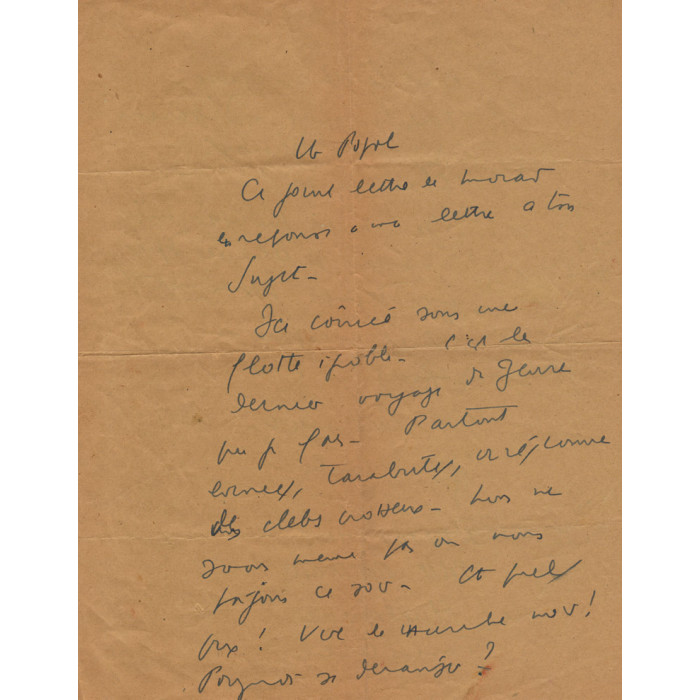 Popol
Ci joint lettre de
en reponse a ma lettre a ton
Sujet -
Ici coincé sous une
flotte ignoble - C'est le
dernier voyage de genre
que je fais - Partout
cornes, Tarabustés, virés comme
des clebs crotteux - Nous ne
savons meme pas ou nous
logeons ce soir - Et quels
prix ! Vive le marché noir !
Pourquoi se déranger ?